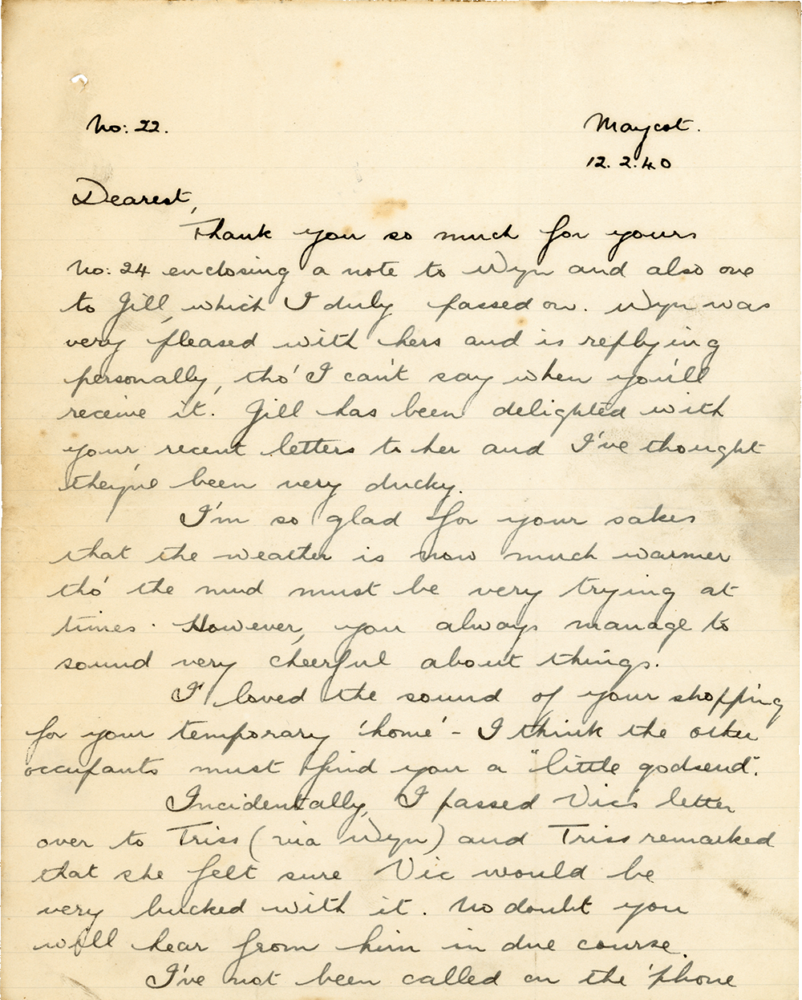 No: 22.
Maycot.
12.2.40
Dearest,
Thank you so much for yours
No: 24 enclosing a note to Wyn and also one
to Gill, which I duly passed on. Wyn was
very pleased with hers and is replying
personally, tho' I can't say when you'll
receive it. Gill has been delighted with
your recent letters to her and I've thought
they've been very ducky.
I'm so glad for your sakes
that the weather is now much warmer
tho' the mud must be very trying at
times. However, you always manage to
sound very cheerful about things.
I loved the sound of your shopping
for your temporary 'home' - I think the other
occupants must find you a "little godsend".
Incidentally, I passed Vic's letter
over to Triss (via Wyn) and Triss remarked
that she felt sure Vic would be
very bucked with it. No doubt you
will hear from him in due course.
I've not been called on the 'phone